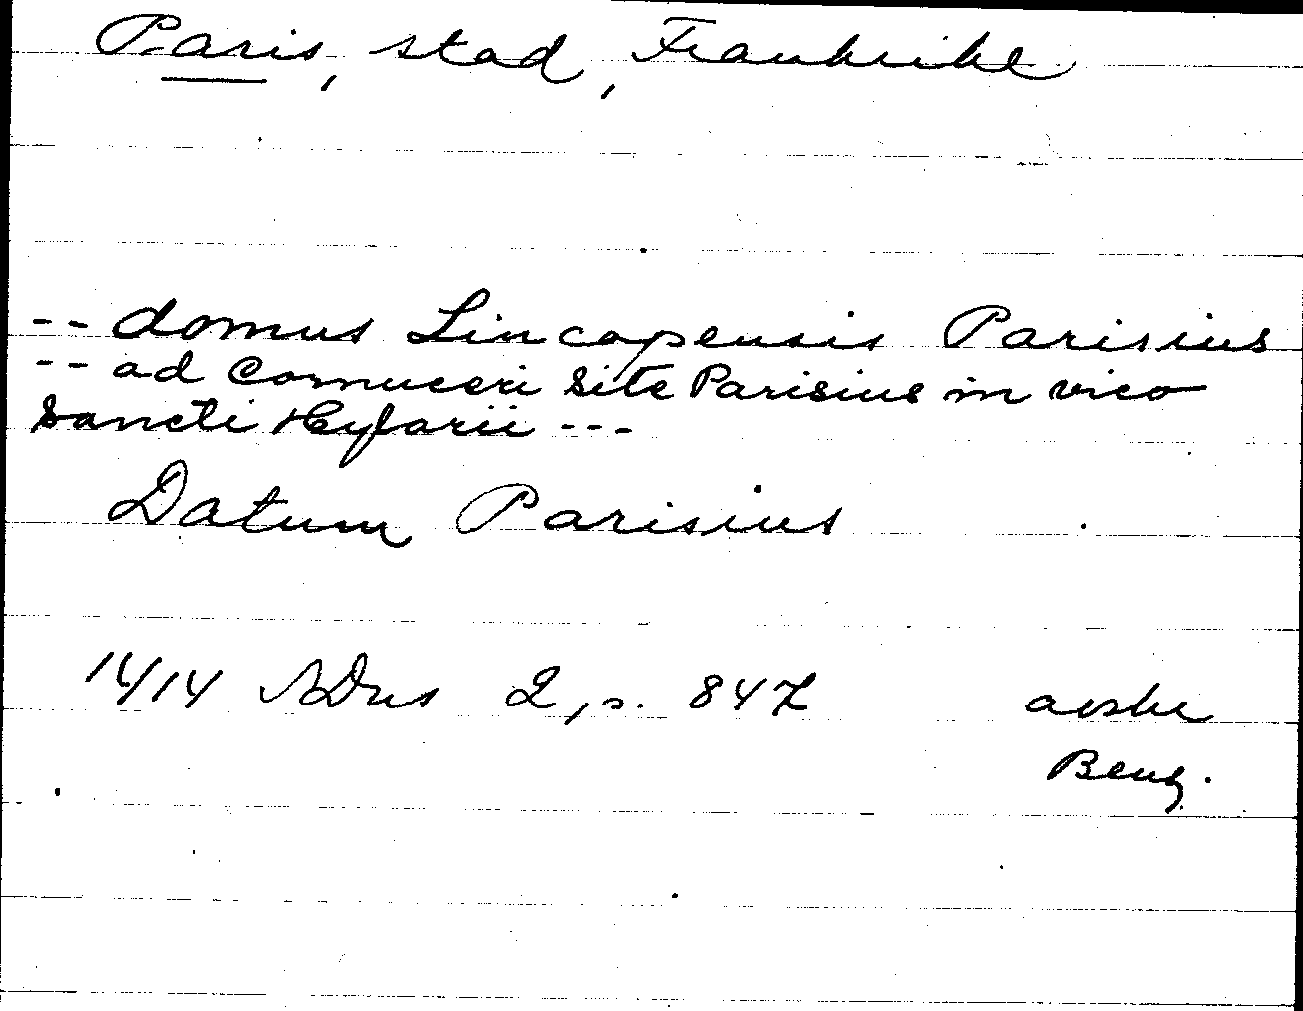 Paris, stad, Frankrike
-- domus Lincopensis Parisius
-- ad Cornuceri site Parisius in vico
Sancti Hylarii ---
Datum Parisius
1414 SDns 2, s. 847 avskr
Beng.